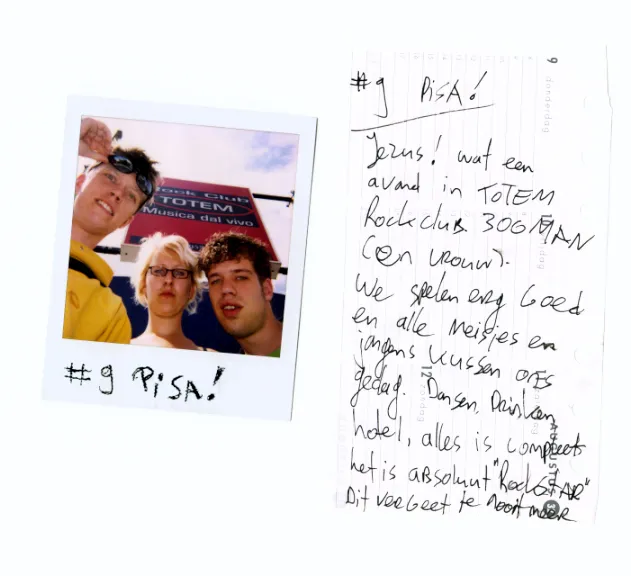 Rock Club
TOTEM
Musica dal vivo
#9 PiSA!
#9 PiSA!
Jezus! wat een
avond in TOTEM
Rockclub. 300 MAN
(en vrouw).
We spelen erg Goed
en alle Meisjes en
jongens kussen ons
gedag. Dansen, Drinken
hotel, alles is compleet
het is absoluut "RockSTAR"
Dit vergeet ik nooit meer
9
donderdag
12
zondag
AUGUSTUS